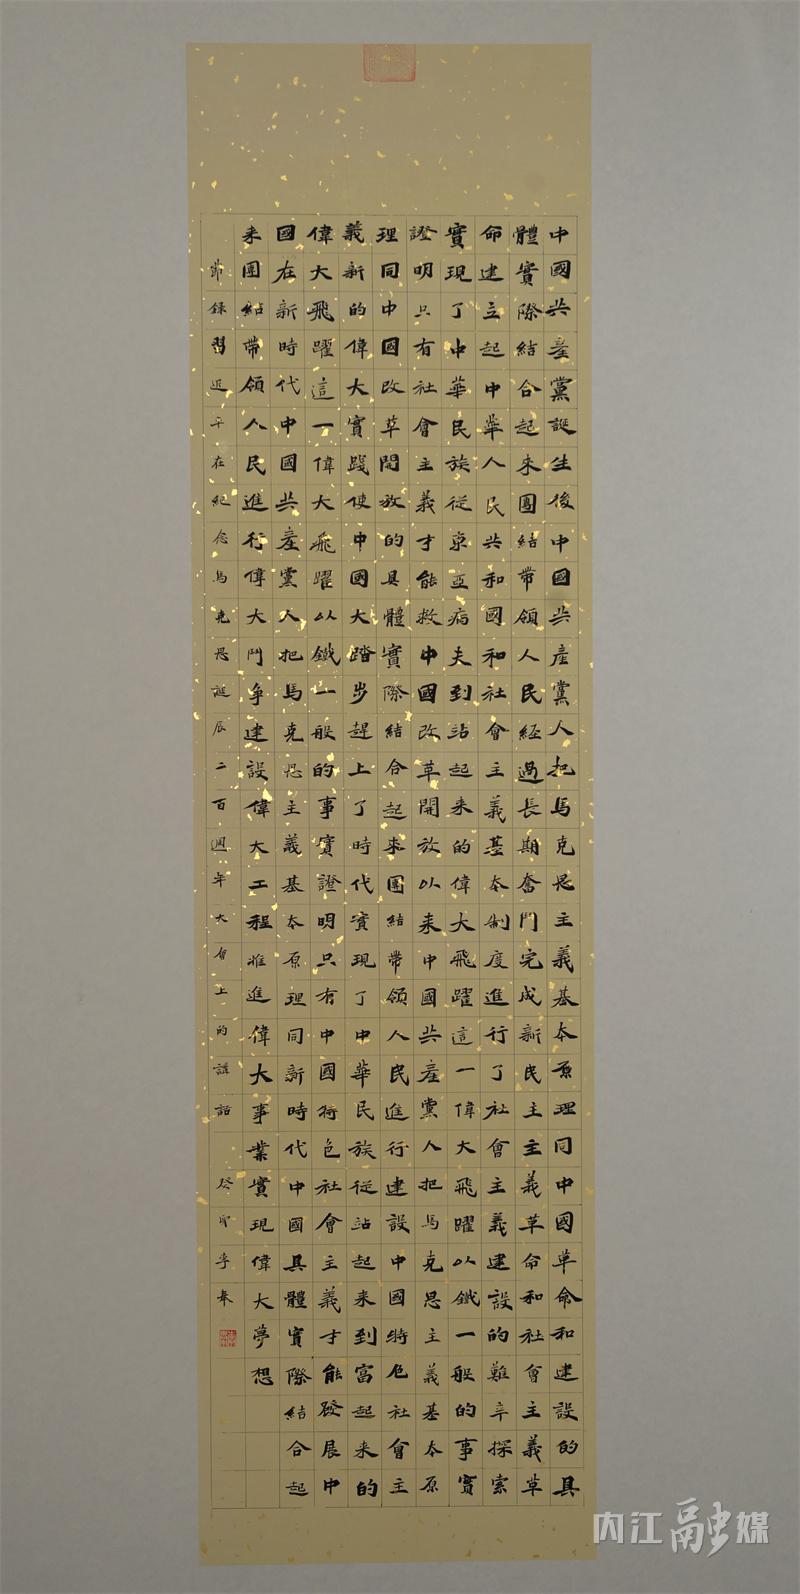 中國共產黨誕生後中國共產黨人把馬克思主義基本原理同中國革命和建設的具
體實際結合起來團結帶領人民經過長期奮鬥完成新民主主義革命和社會主義革
命建立起中華人民共和國和社會主義基本制度進行了社會主義建設的難辛探索
實現了中華民族從東亞病夫到站起來的偉大飛躍這一偉大飛躍以鐵一般的事實
證明只有社會主義才能救中國改革開放以來中國共產黨人把馬克思主義基本原
理同中國改革開放的具體實際結合起來團結帶領人民進行建設中國特色社會主
義新的偉大實踐使中國大踏步趕上了時代實現了中華民族從站起來到富起來的
偉大飛躍這一偉大飛躍以鐵一般的事實證明只有中國特色社會主義才能發展中
國在新時代中國共產黨人把馬克思主義基本原理同新時代中國具體實際結合起
來團結帶領人民進行偉大鬥爭建設偉大工程推進偉大事業實現偉大夢想
節錄習近平在紀念馬克思誕辰二百週年大會上的講話 癸卯李奉
内江融媒